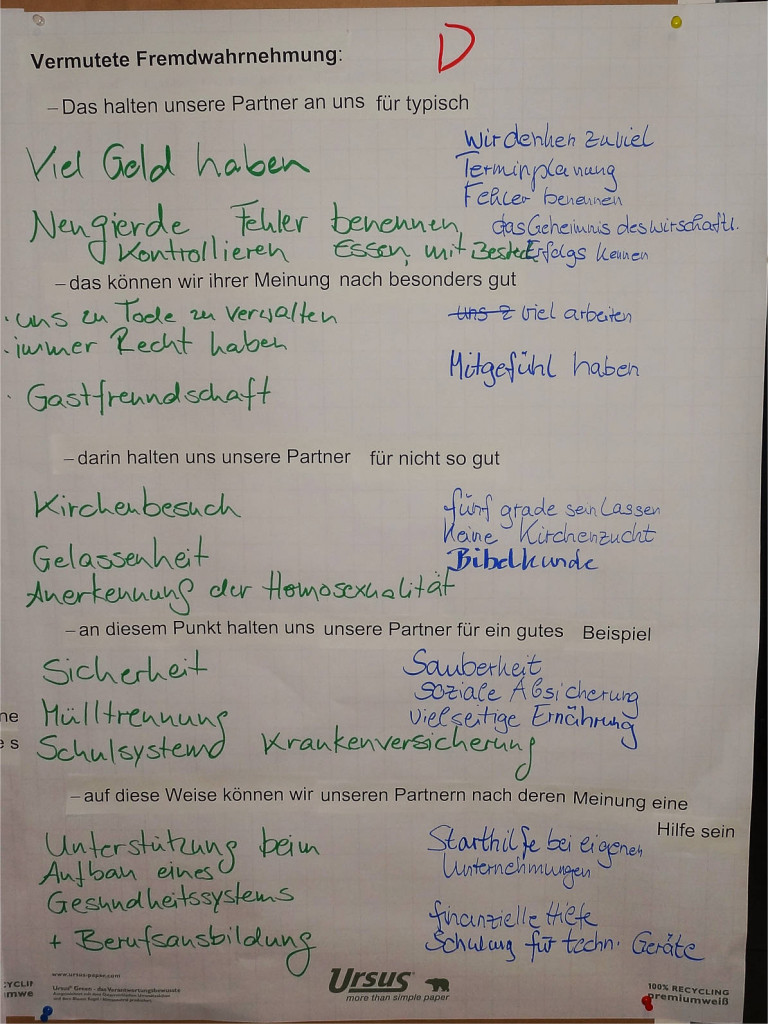 D
Vermutete Fremdwahrnehmung:
– Das halten unsere Partner an uns für typisch
Viel Geld haben
Wir denken zuviel
Terminplanung
Fehler benennen
Neugierde Fehler benennen
das Geheimnis des Wirtschaftl.
Kontrollieren Essen, mit Besteck
Erfolgs kennen
– das können wir ihrer Meinung nach besonders gut
· uns zu Tode zu verwalten
uns z viel arbeiten
· immer Recht haben
Mitgefühl haben
· Gastfreundschaft
– darin halten uns unsere Partner für nicht so gut
Kirchenbesuch
fünf grade sein lassen
keine Kirchenzucht
Gelassenheit
Bibelkunde
Anerkennung der Homosexualität
– an diesem Punkt halten uns unsere Partner für ein gutes Beispiel
Sicherheit
Sauberheit
soziale Absicherung
ne
Mülltrennung
vielseitige Ernährung
e s
Schulsystem Krankenversicherung
– auf diese Weise können wir unseren Partnern nach deren Meinung eine
Hilfe sein
Unterstützung beim
Starthilfe bei eigenen
Aufbau eines
Unternehmungen
Gesundheitssystems
finanzielle Hilfe
+ Berufsausbildung
Schulung für techn. Geräte
www.ursus-paper.com
Ursus® Green - das Verantwortungsbewusste
Ursus®
more than simple paper
100% RECYCLING
premiumweiß